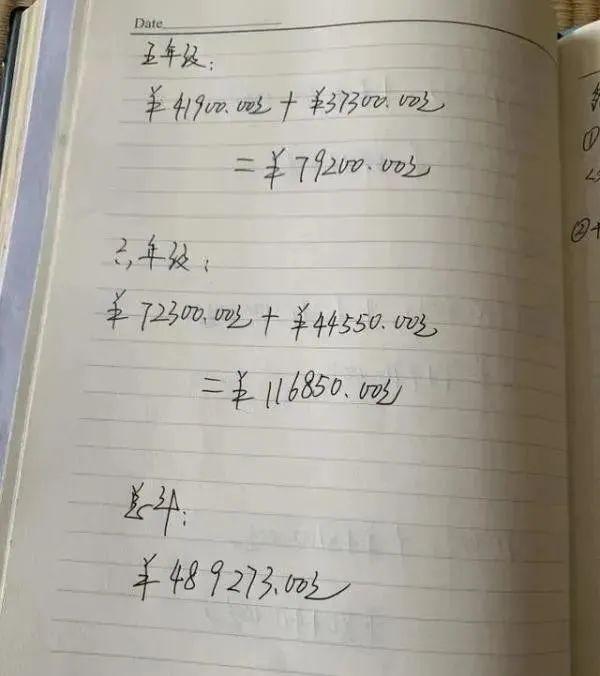 Date
五年级：
¥41900.00元 + ¥37300.00元
= ¥79200.00元
六年级：
¥72300.00元 + ¥44550.00元
= ¥116850.00元
总计：
¥489273.00元
①
②